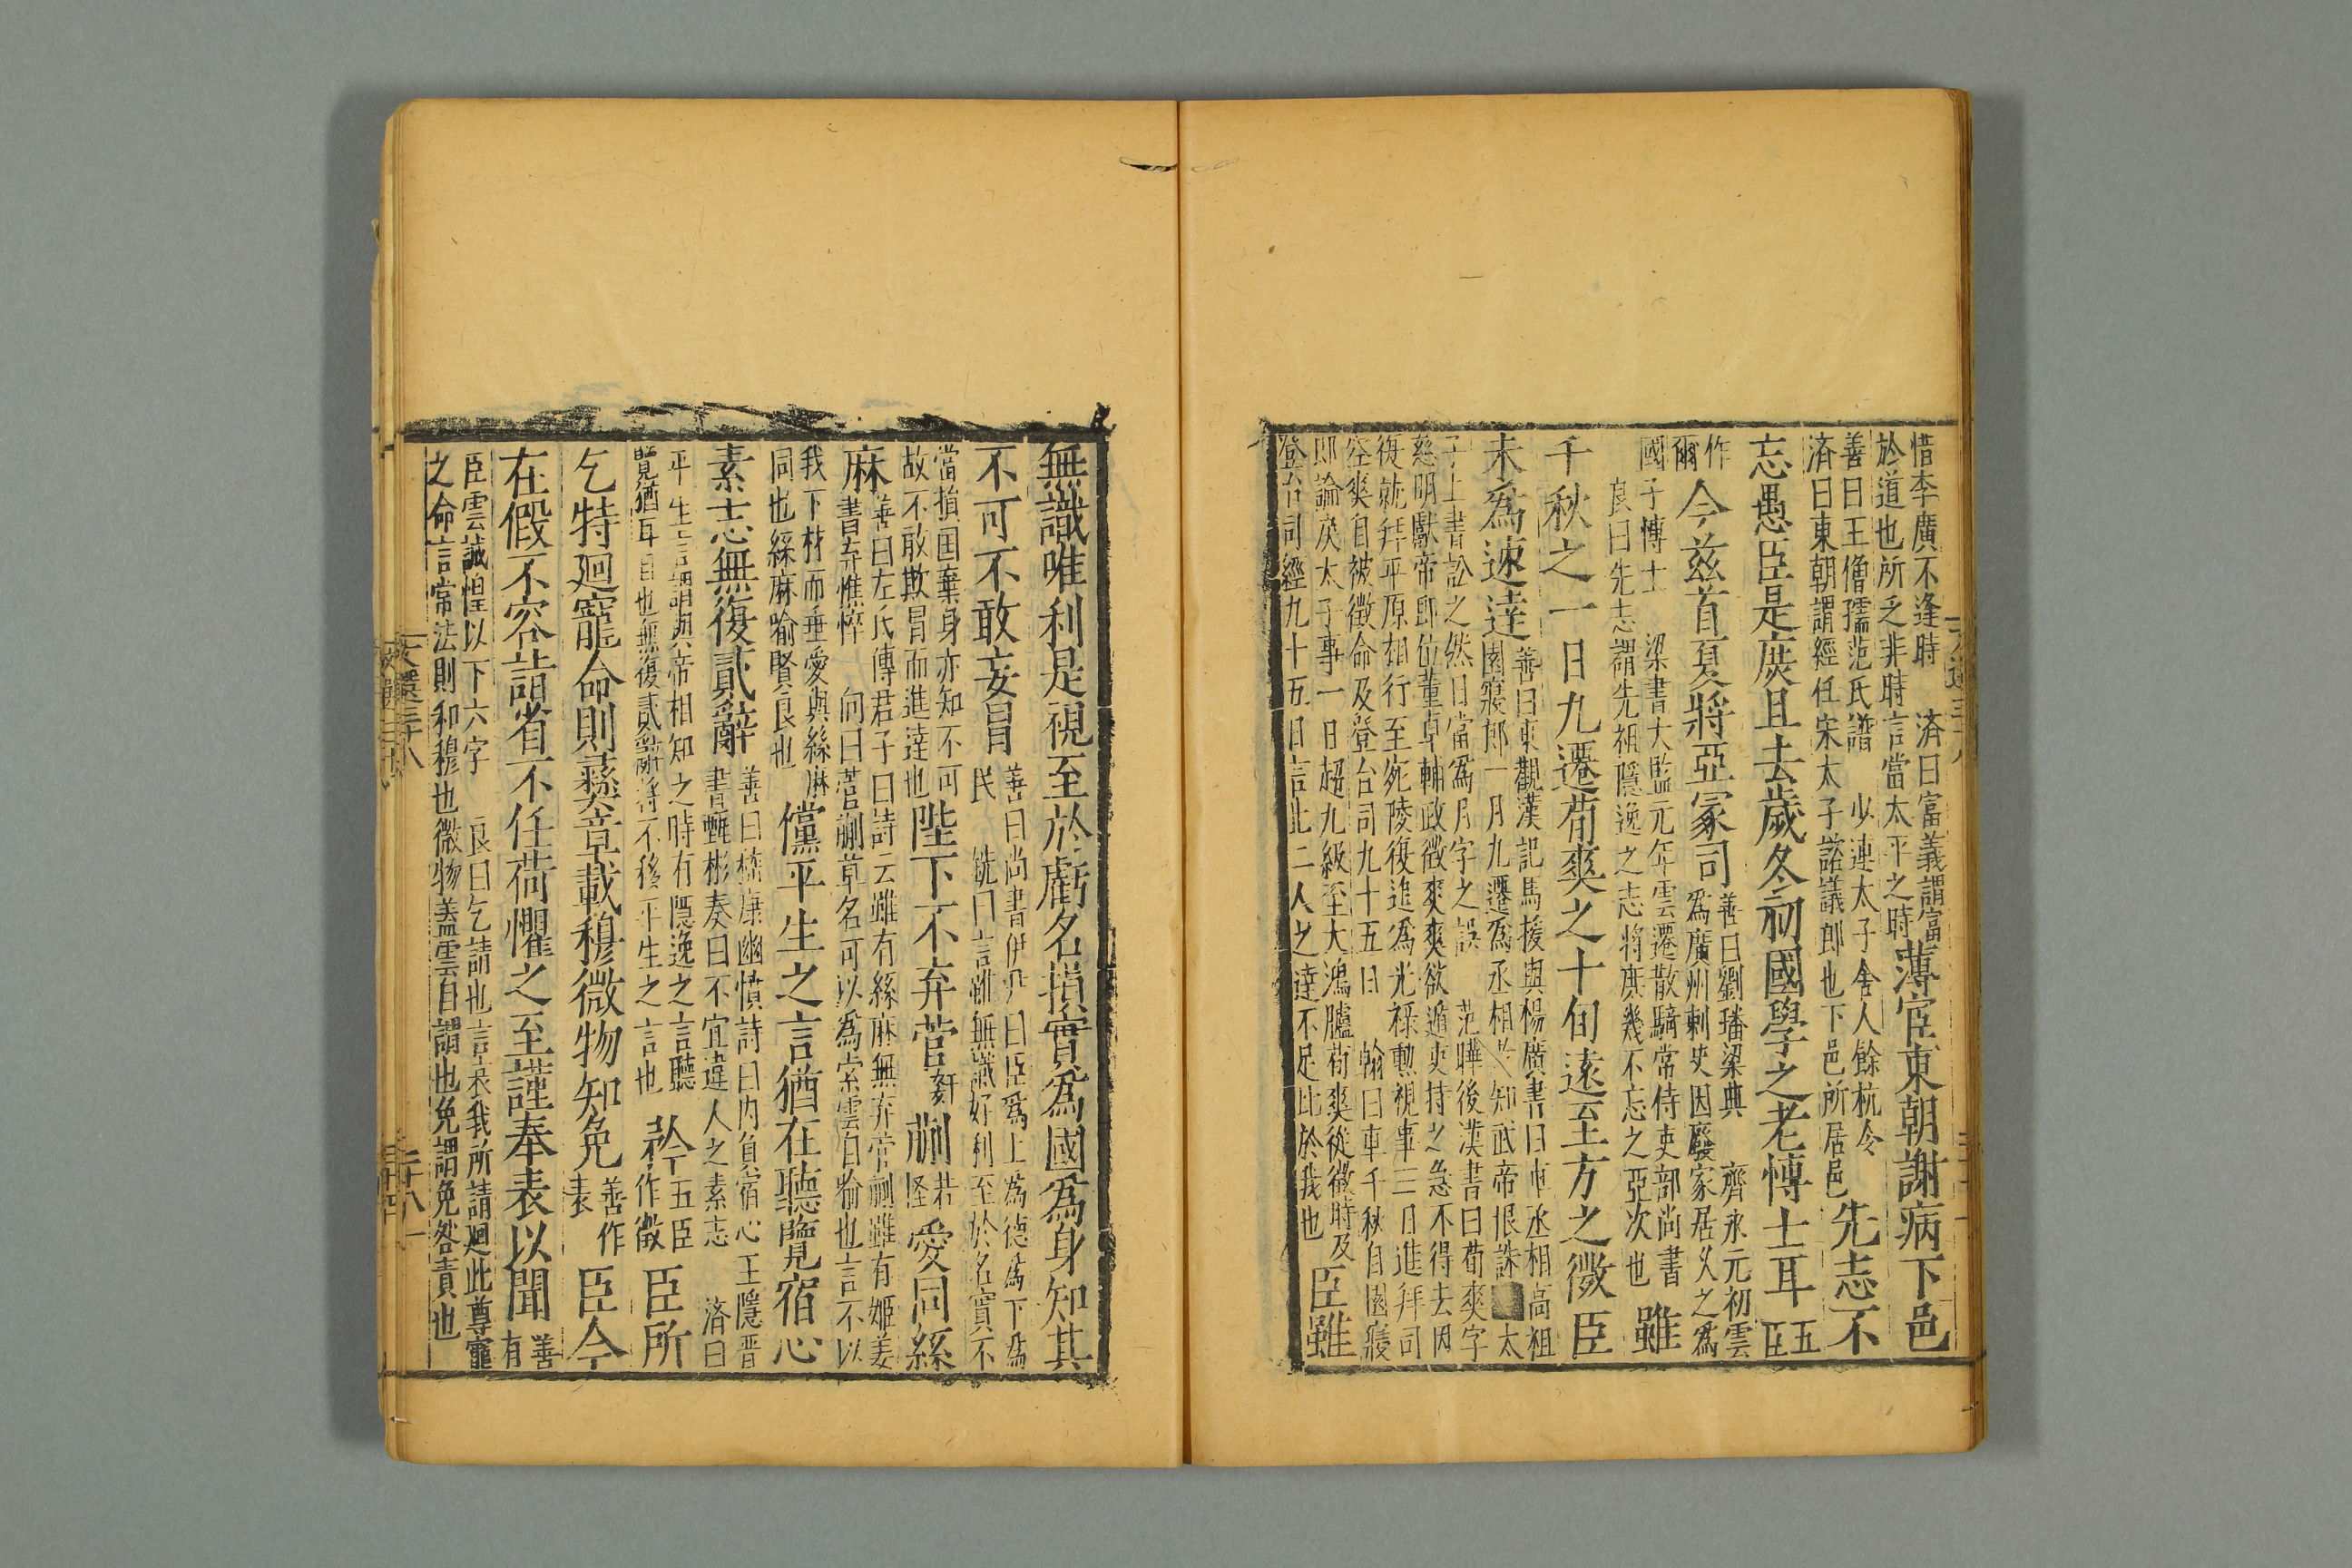 惜李廣不逢時　済曰富義謂富
於道也所乏非時言當太平之時
薄宦東朝謝病下邑
善曰王僧孺范氏譜　少連太子舍人餘杭令
済曰東朝謂經任宋太子諮議郎也下邑所居邑
先志不
忘愚臣是庻且去歲冬初國學之老愽士耳
五臣
作爾
今兹首夏將亞冢司
善曰劉璠梁典　齊永元初雲
為廣州刺史因廢家居久之爲
國子愽士　梁書大監元年雲遷散騎常侍吏部尚書
良曰先志謂先祖隱逸之志將庻幾不忘之亞次也
雖
千秋之一日九遷荀爽之十旬逺至方之微臣
未爲速達
善曰東觀漢記馬援與楊廣書曰車丞相高祖
園寢郎一月九遷爲丞相者知武帝恨誅太
子上書訟之然日當爲月字之誤　范曄後漢書曰荀爽字
慈明獻帝即位董卓輔政徵爽爽欲遁吏持之急不得去因
復就拜平原相行至宛陵復追爲光祿勲視事三日進拜司
空爽自被徵命及登台司九十五日　翰曰車千秋自園寢
郎論戾太子事一日超九級至大鴻臚荀爽從徵時及
登台司經九十五日言此二人之達不足比於我也
臣雖
無識唯利是視至於虧名損實爲國爲身知其
不可不敢妄冒
善曰尚書伊尹曰臣爲上爲德爲下爲
民　銑曰言雖無識好利至於名實不
當損國棄身亦知不可
故不敢欺冒而進達也
陛下不弃菅
姧
蒯
苦
怪
愛同絲
麻
善曰左氏傳君子曰詩云雖有絲麻無弃菅蒯雖有姬姜
書弃憔悴　向曰菅蒯草名可以爲索雲自喻也言不以
我下材而垂愛與絲麻
同也絲麻喻賢良也
儻平生之言猶在聽覽宿心
素志無復貳辭
善曰嵇康幽憤詩曰内負宿心王隱晋
書甄彬奏曰不宜違人之素志　済曰
平生言謂與帝相知之時有隱逸之言聽
覽猶耳目也無復貳辭將不移平生之言也
矜
五臣
作徽
臣所
乞特廻寵命則彛章載穆微物知免
善作
表
臣今
在假不容詣省不任荷懼之至謹奉表以聞
善
有
臣雲誠惶以下六字　良曰乞請也言哀我所請廻此尊寵
之命言常法則和穆也微物盖雲自謂也免謂免咎責也